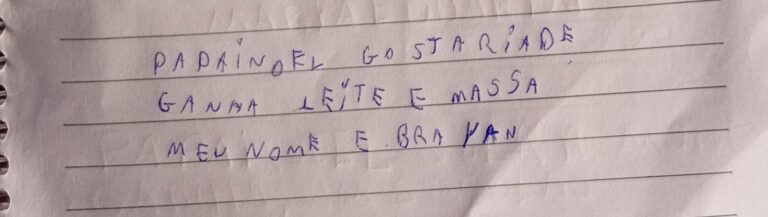 PAPAINOEL GOSTARIADE
GANHA LEITE E MASSA
MEU NOME E.BRAYAN